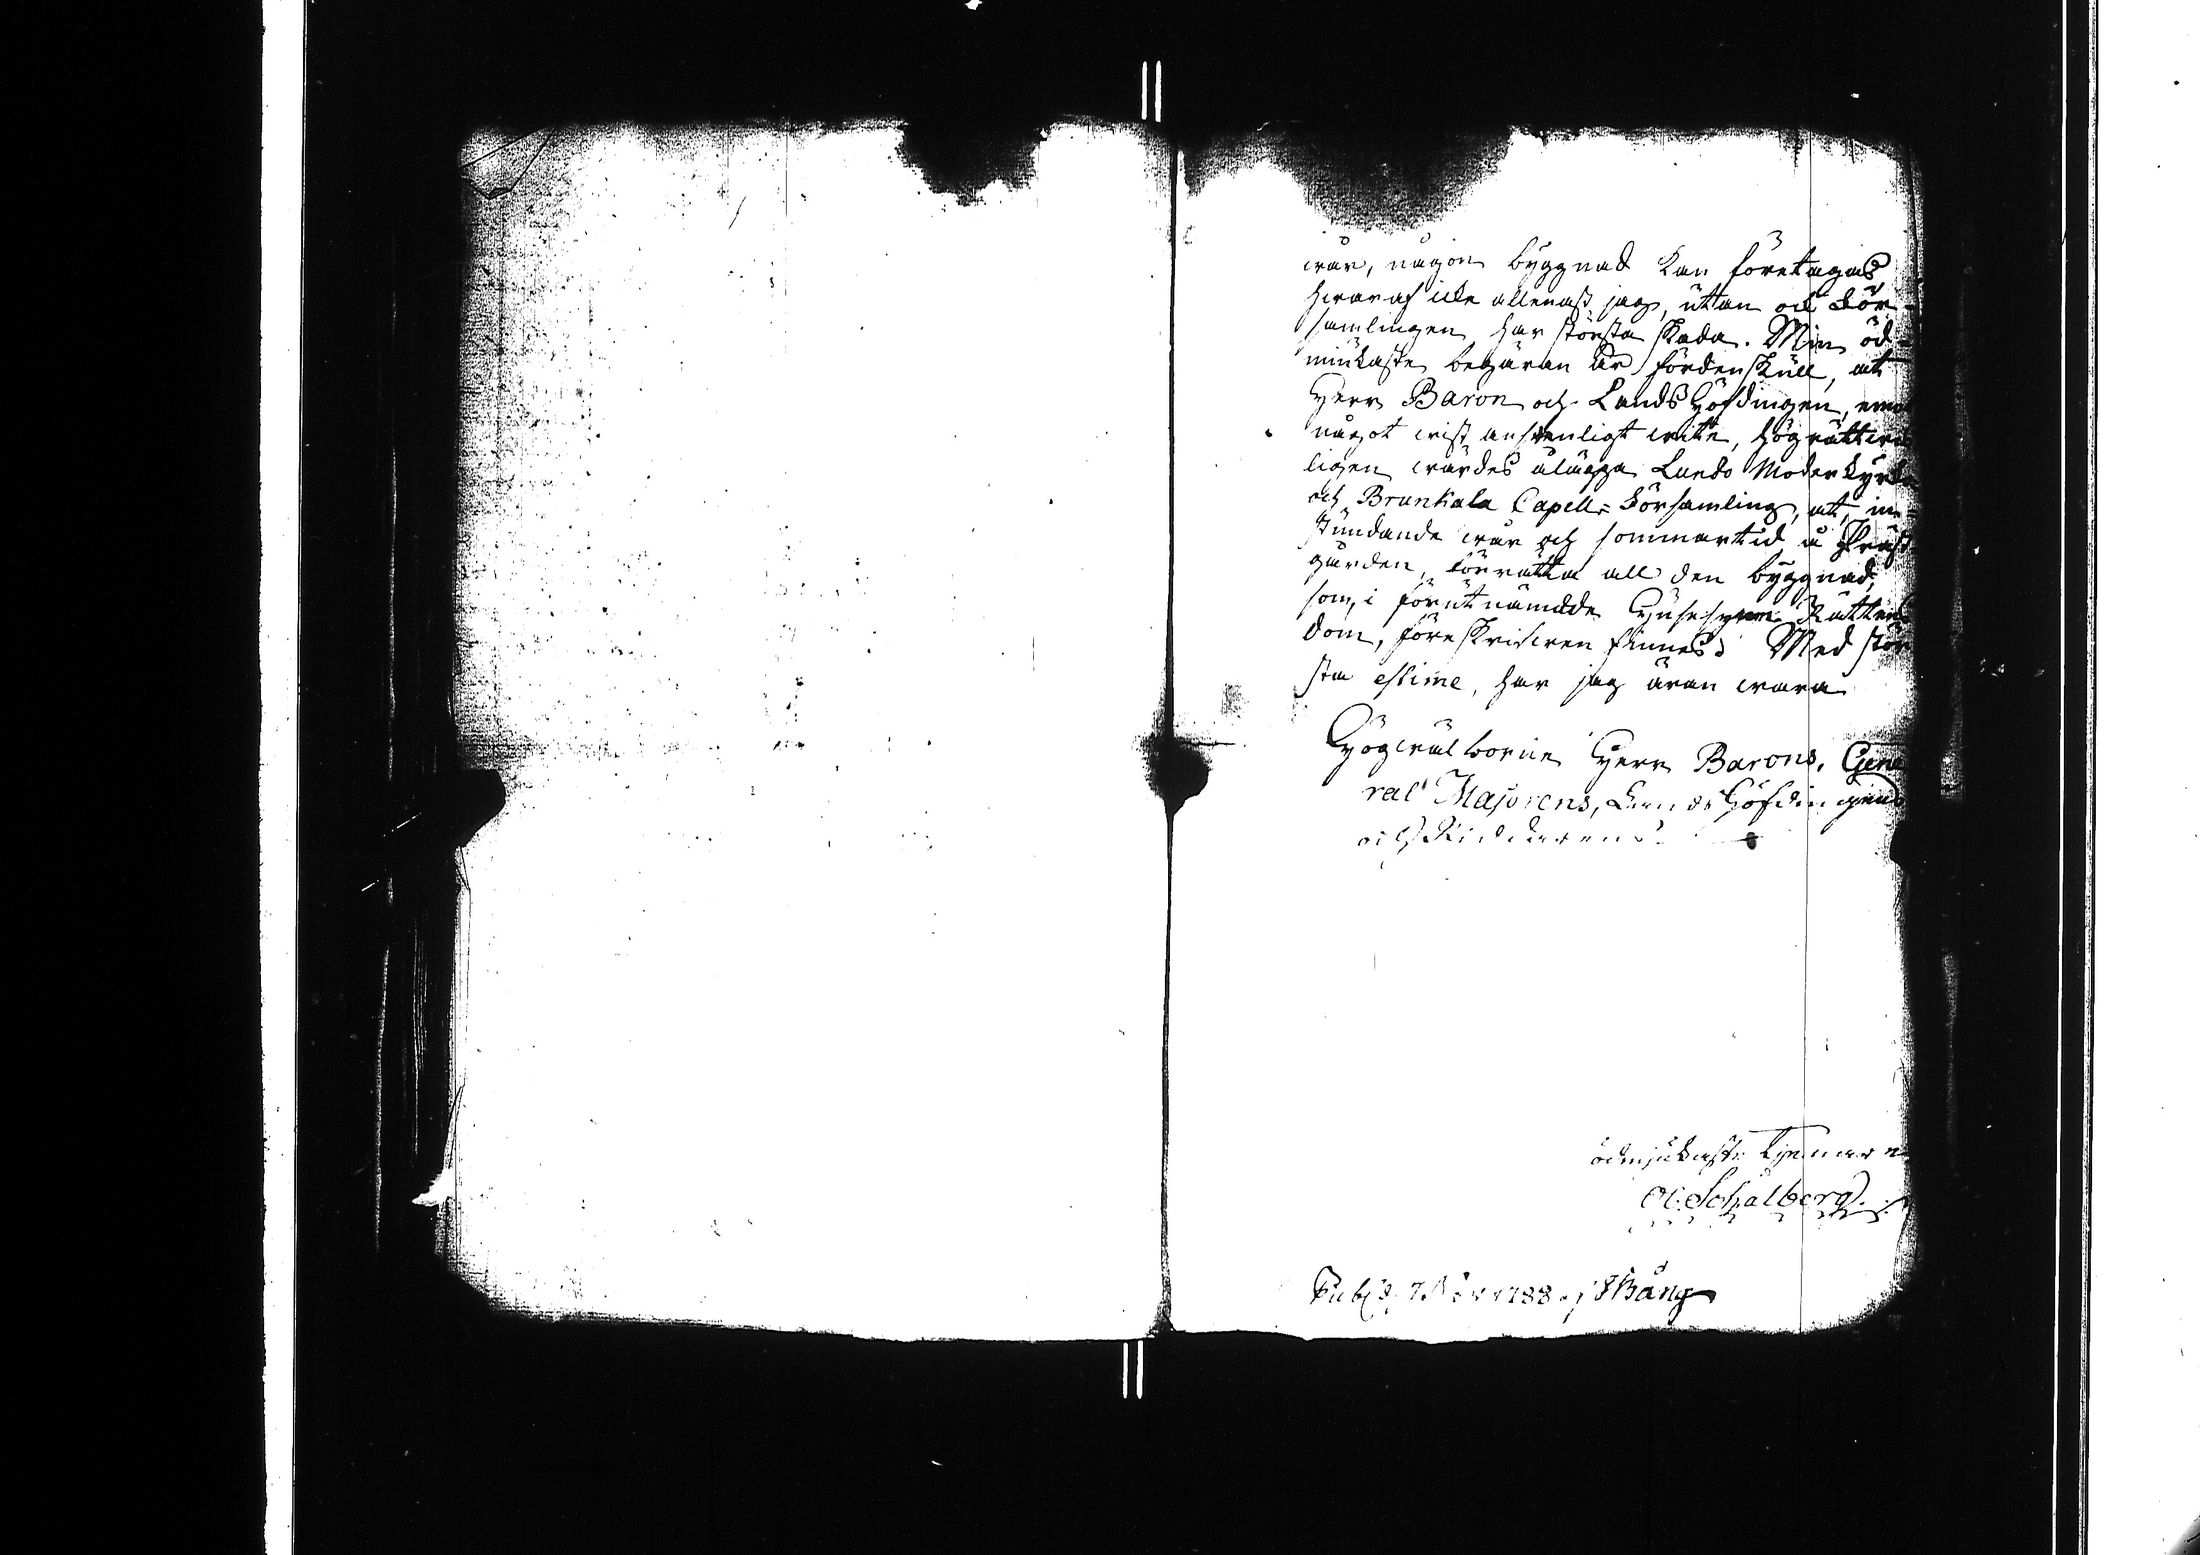 wår, någon byggnad kan företagas
hwaraf icke allenast jag, utan ock för-
samlingen har största skada. Min öd-
miukaste begäran är fördenskull, at
Herr Baron och LandsHöfdingen, emot
något wist ansenligt wite, högrättwis
ligen wärdes ålägga Lundo Moderkyrko
och Brunkala Capell-församling, at, in-
stundande wår och sommartid å Präst
gården, förrätta all den byggnad,
som, i förutnämdde Husesyns Rättens
dom, föreskrifwen finnes. Med stör
sta estime, har jag äran wara
Högwälborne Herr Barons, Gene
ral Majorens, LandsHöfdingens
och Riddarens
ödmjukaste tjenare
Schalberg
Publ. d. 7 1788. Bång